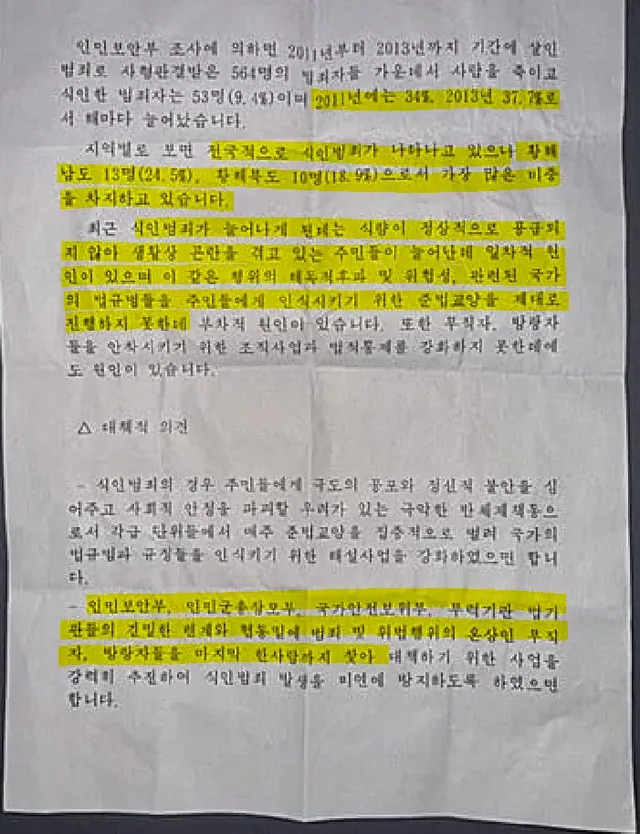 인민보안부 조사에 의하면 2011년부터 2013년까지 기간에 살인
범죄로 사형판결받은 564명의 범죄자들 가운데서 사람을 죽이고
식인한 범죄자는 53명(9.4%)이며 2011년에는 34%, 2013년 37.7%로
서 해마다 늘어났습니다.
지역별로 보면 전국적으로 식인범죄가 나타나고 있으나 황해
남도 13명(24.5%), 황해북도 10명(18.9%)으로서 가장 많은 비중
을 차지하고 있습니다.
최근 식인범죄가 늘어나게 된데는 식량이 정상적으로 공급되
지 않아 생활상 곤란을 겪고 있는 주민들이 늘어난데 일차적 원
인이 있으며 이 같은 행위의 해독적후과 및 위험성, 관련된 국가
의 법규범들을 주민들에게 인식시키기 위한 준법교양을 제대로
진행하지 못한데 부차적 원인이 있습니다. 또한 무직자, 방랑자
들을 안착시키기 위한 조직사업과 법적통제를 강화하지 못한데에
도 원인이 있습니다.
△ 대책적 의견
- 식인범죄의 경우 주민들에게 극도의 공포와 정신적 불안을 심
어주고 사회적 안정을 파괴할 우려가 있는 극악한 반체제책동으
로서 각급 단위들에서 매주 준법교양을 집중적으로 벌려 국가의
법규범과 규정들을 인식키기 위한 해설사업을 강화하였으면 합니
다.
- 인민보안부, 인민군총참모부, 국가안전보위부, 무력기관 법기
관들의 긴밀한 련계와 협동밑에 범죄 및 위법행위의 온상인 무직
자, 방랑자들을 마지막 한사람까지 찾아 대책하기 위한 사업을
강력히 추진하여 식인범죄 발생을 미연에 방지하도록 하였으면
합니다.